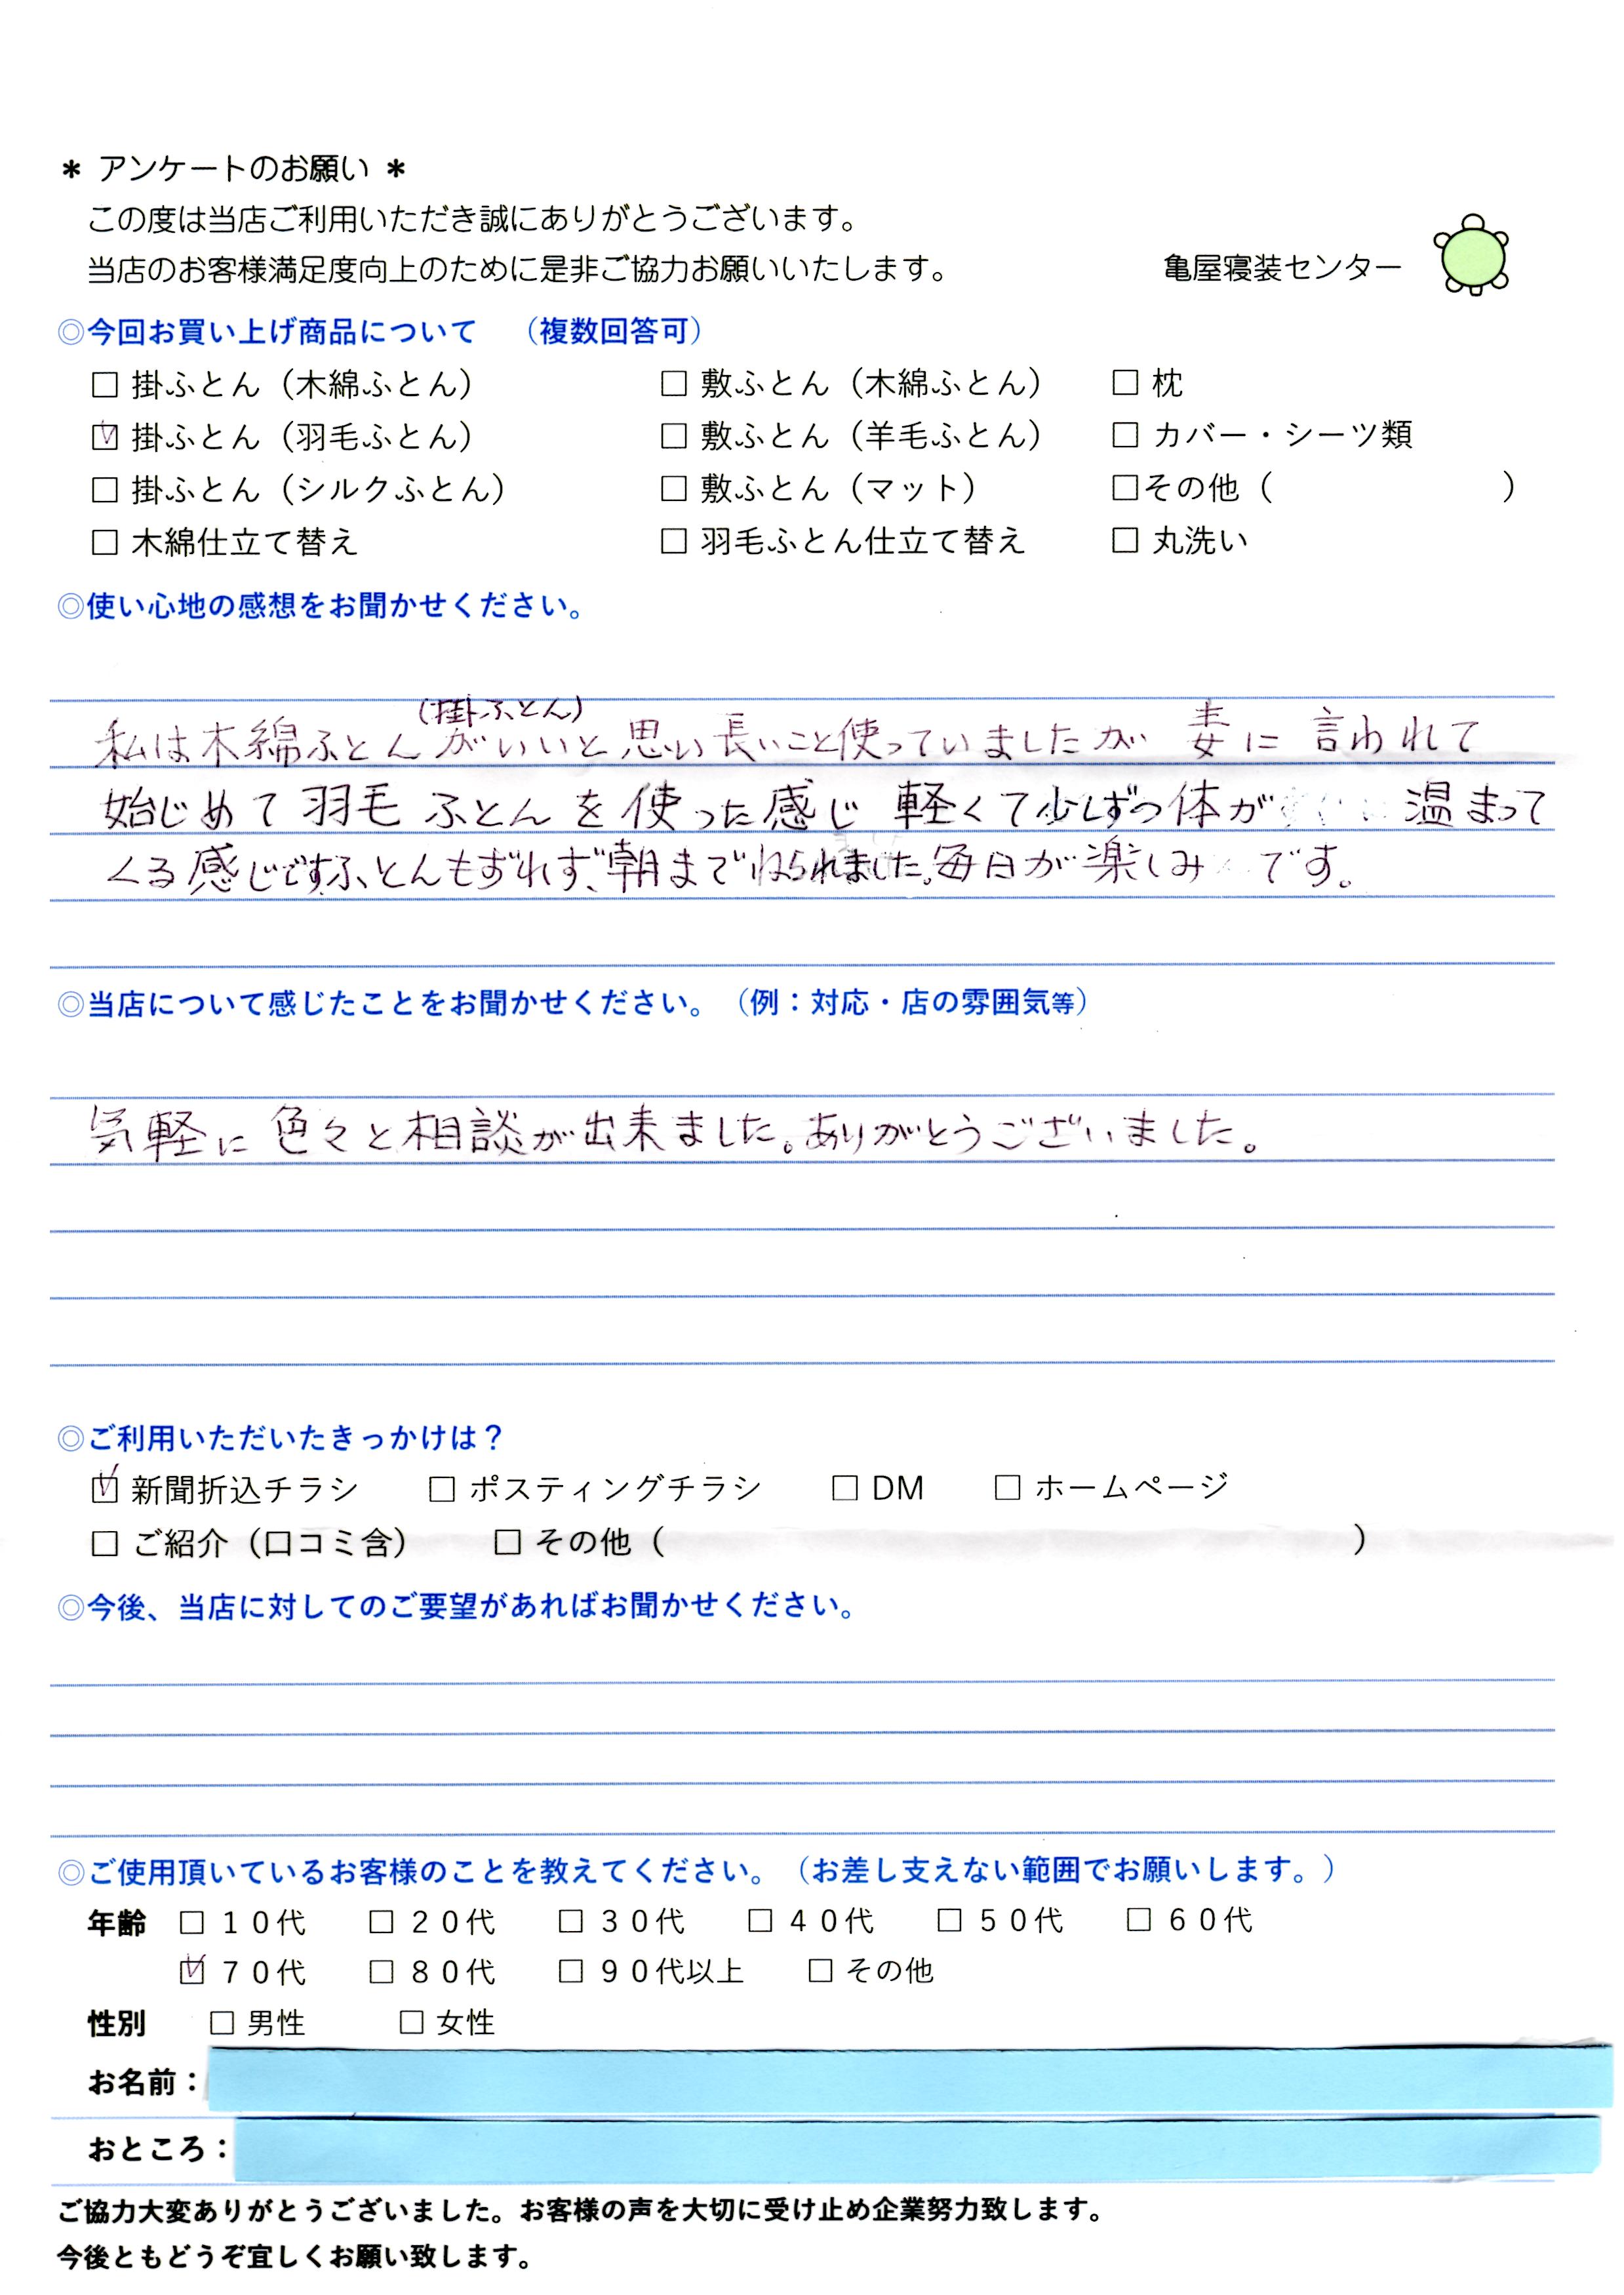 ＊ アンケートのお願い ＊
この度は当店ご利用いただき誠にありがとうございます。
当店のお客様満足度向上のために是非ご協力お願いいたします。 亀屋寝装センター
◎今回お買い上げ商品について （複数回答可）
□ 掛ふとん（木綿ふとん） □ 敷ふとん（木綿ふとん） □ 枕
☑ 掛ふとん（羽毛ふとん） □ 敷ふとん（羊毛ふとん） □ カバー・シーツ類
□ 掛ふとん（シルクふとん） □ 敷ふとん（マット） □その他（ ）
□ 木綿仕立て替え □ 羽毛ふとん仕立て替え □ 丸洗い
◎使い心地の感想をお聞かせください。
（掛ふとん）
私は木綿ふとんがいいと思い長いこと使っていましたが 妻に言われて
始じめて羽毛ふとんを使った感じ 軽くて少しずつ体が 温まって
くる感じですふとんもずれず、朝までねられました。毎日が楽しみです。
◎当店について感じたことをお聞かせください。（例：対応・店の雰囲気等）
気軽に色々と相談が出来ました。ありがとうございました。
◎ご利用いただいたきっかけは？
☑ 新聞折込チラシ □ ポスティングチラシ □ DM □ ホームページ
□ ご紹介（口コミ含） □ その他（ ）
◎今後、当店に対してのご要望があればお聞かせください。
◎ご使用頂いているお客様のことを教えてください。（お差し支えない範囲でお願いします。）
年齢 □ １０代 □ ２０代 □ ３０代 □ ４０代 □ ５０代 □ ６０代
☑ ７０代 □ ８０代 □ ９０代以上 □ その他
性別 □ 男性 □ 女性
お名前：
おところ：
ご協力大変ありがとうございました。お客様の声を大切に受け止め企業努力致します。
今後ともどうぞ宜しくお願い致します。